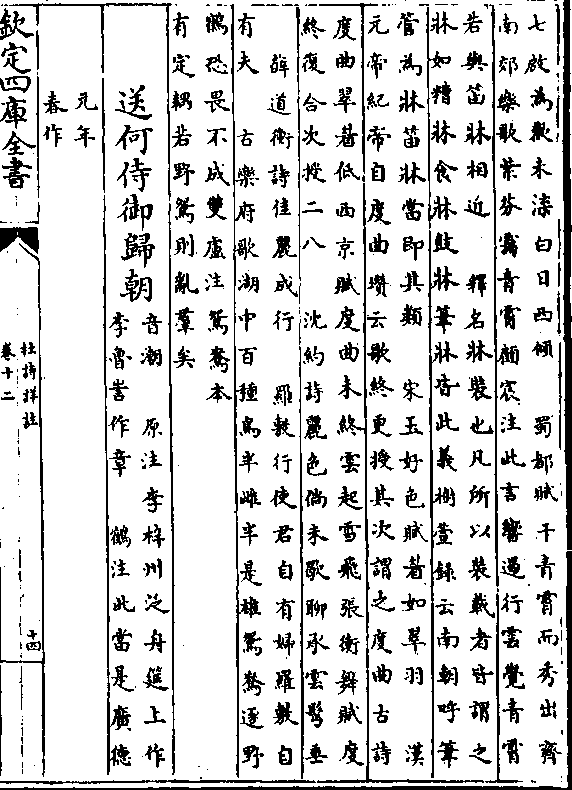 七啟為歡未渫白日西傾　蜀都賦干青霄而秀出齊
南郊樂歌紫芬靄青霄顔宸注此言響遏行雲覺青霄
若與笛牀相近　釋名牀裝也凡所以裝載者皆謂之
牀如糟牀食牀鼓牀筆牀皆此義樹萱録云南朝呼筆
管為牀笛牀當即其類　宋玉好色賦睂如翠羽　漢
元帝紀帝自度曲瓚云歌終更授其次謂之度曲古詩
度曲翠睂低西京賦度曲未終雲起雪飛張衡舞賦度
終復合次授二八　沈約詩麗色倘未歇聊承雲鬢垂
薛道衡詩佳麗成行　羅敷行使君自有婦羅敷自
有夫　古樂府歌湖中百種鳥半雌半是雄鴛鴦逐野
鶴恐畏不成雙盧注鴛鴦本
有定耦若野鴛則亂羣矣
送何侍御歸朝
音潮　原注李梓州泛舟筵上作
李魯訔作章　鶴注此當是廣德
元年
春作
欽定四庫全書
杜詩詳註
卷十二
十四